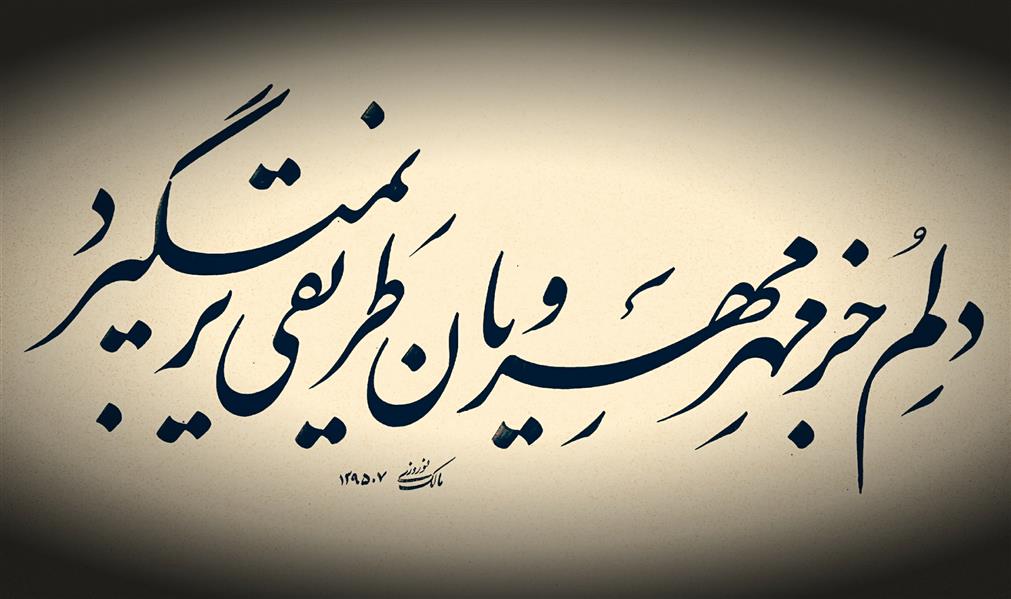 دلم جز مهر مهرویان طریقی بر نمیگیرد
مالک نوروزی ۱۳۹۵.۷